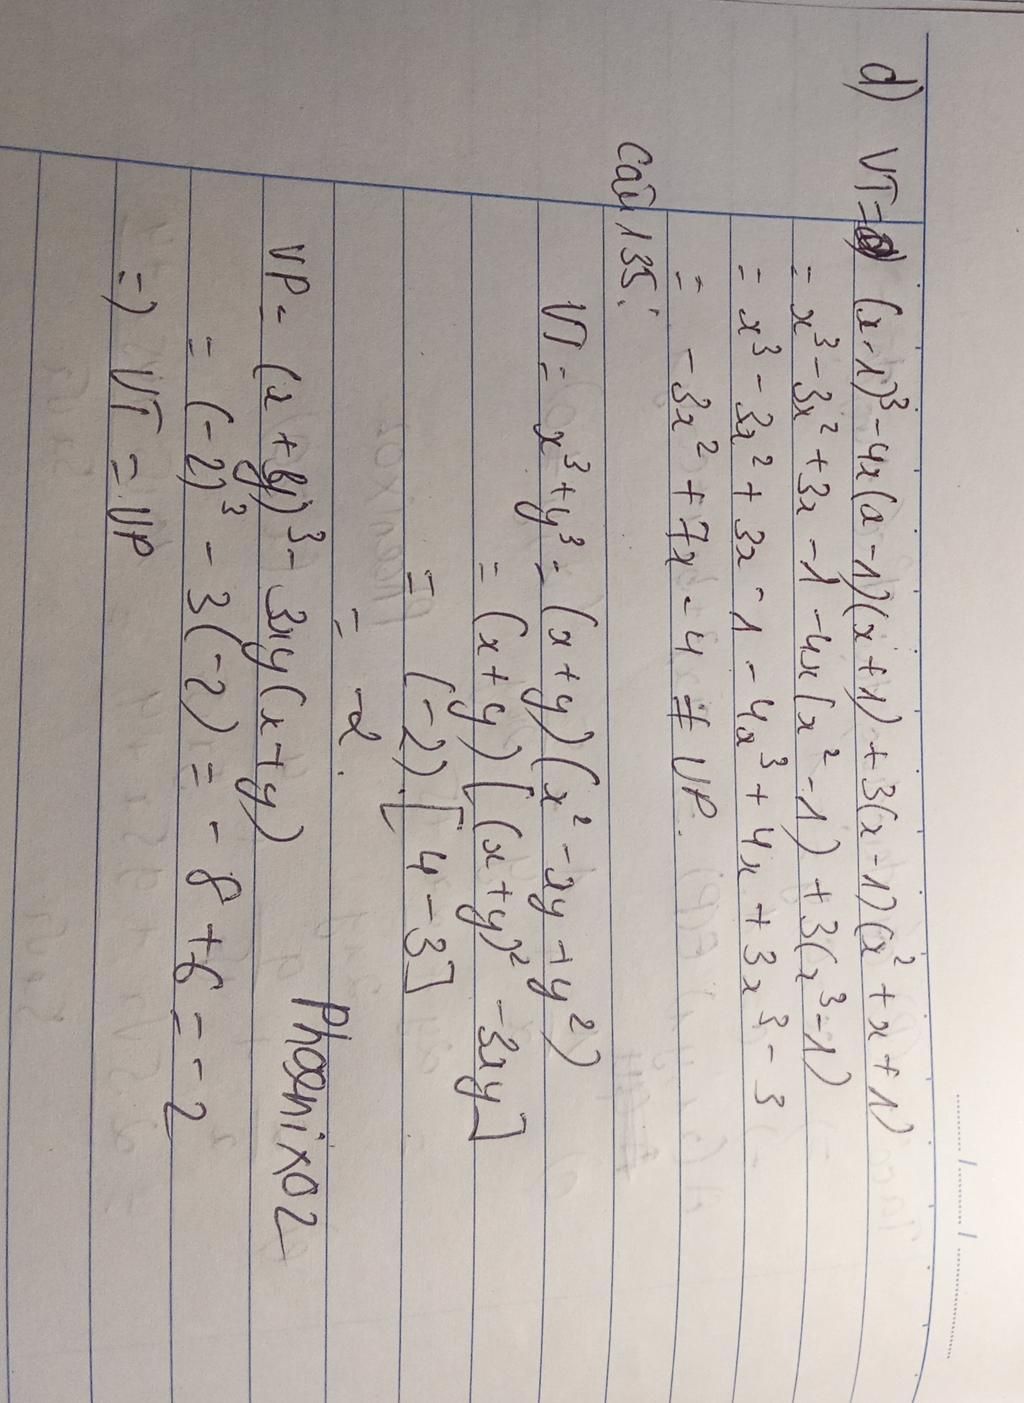 d) VT = (x-1)³ - 4x(x-1)(x+1) + 3(x-1)(x² + x + 1)
= x³ - 3x² + 3x - 1 - 4x(x² - 1) + 3(x³ - 1)
= x³ - 3x² + 3x - 1 - 4x³ + 4x + 3x³ - 3
= - 3x² + 7x - 4 ≠ VP.
Câu 135:
VT = x³ + y³ = (x + y)(x² - xy + y²)
= (x + y)[(x + y)² - 3xy]
= (-2).[4 - 3]
= -2.
VP = (x + y)³ - 3xy(x + y)
= (-2)³ - 3(-2) = - 8 + 6 = - 2
=) VT = VP
Phoenix02